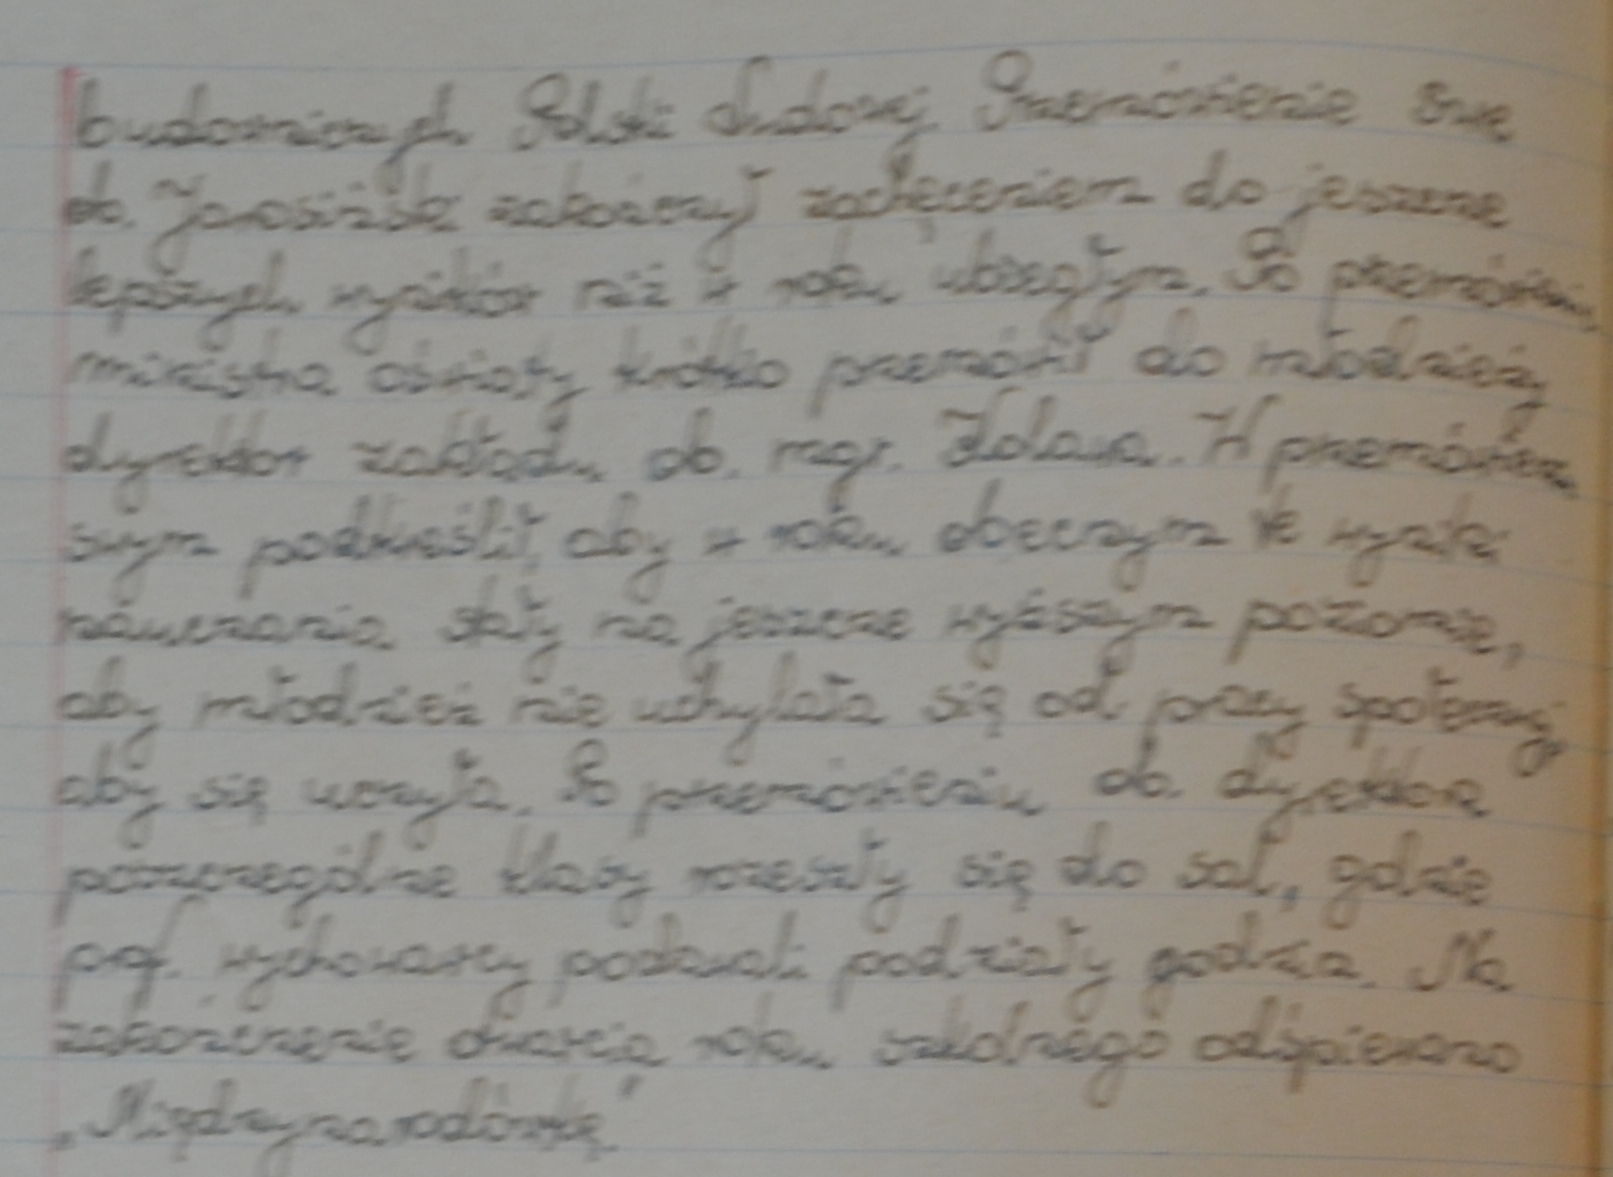 budowniczych Polski Ludowej. Przemówienie swe
ob. Jarosiński zakończył zachęceniem do jeszcze
lepszych wyników niż w roku ubiegłym. Po przemówieniu
ministra oświaty krótko przemówił do młodzieży
dyrektor zakładu ob. mgr.
swym podkreślił, aby w roku obecnym te wyniki
nauczania stały na jeszcze wyższym poziomie,
aby młodzież nie uchylała się od pracy społecznej,
aby się uczyła. Po przemówieniu ob. dyrektora
poszczególne klasy rozeszły się do sal, gdzie
prof. wychowawcy podawali podziały godzin. Na
zakończenie otwarcia roku szkolnego odśpiewano
„Międzynarodówkę"